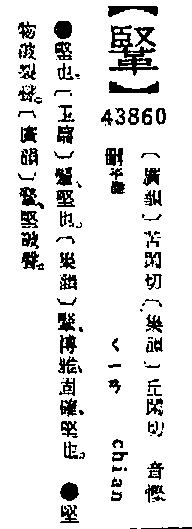 【】
43860
〔廣韻〕苦閑切〔集韻〕丘閑切 音慳
刪平聲 ㄑㄧㄢ chian
●堅也。〔玉篇〕、堅也。〔集韻〕、博雅、固確、堅也。 ●堅
物破裂聲。〔廣韻〕、堅破聲。